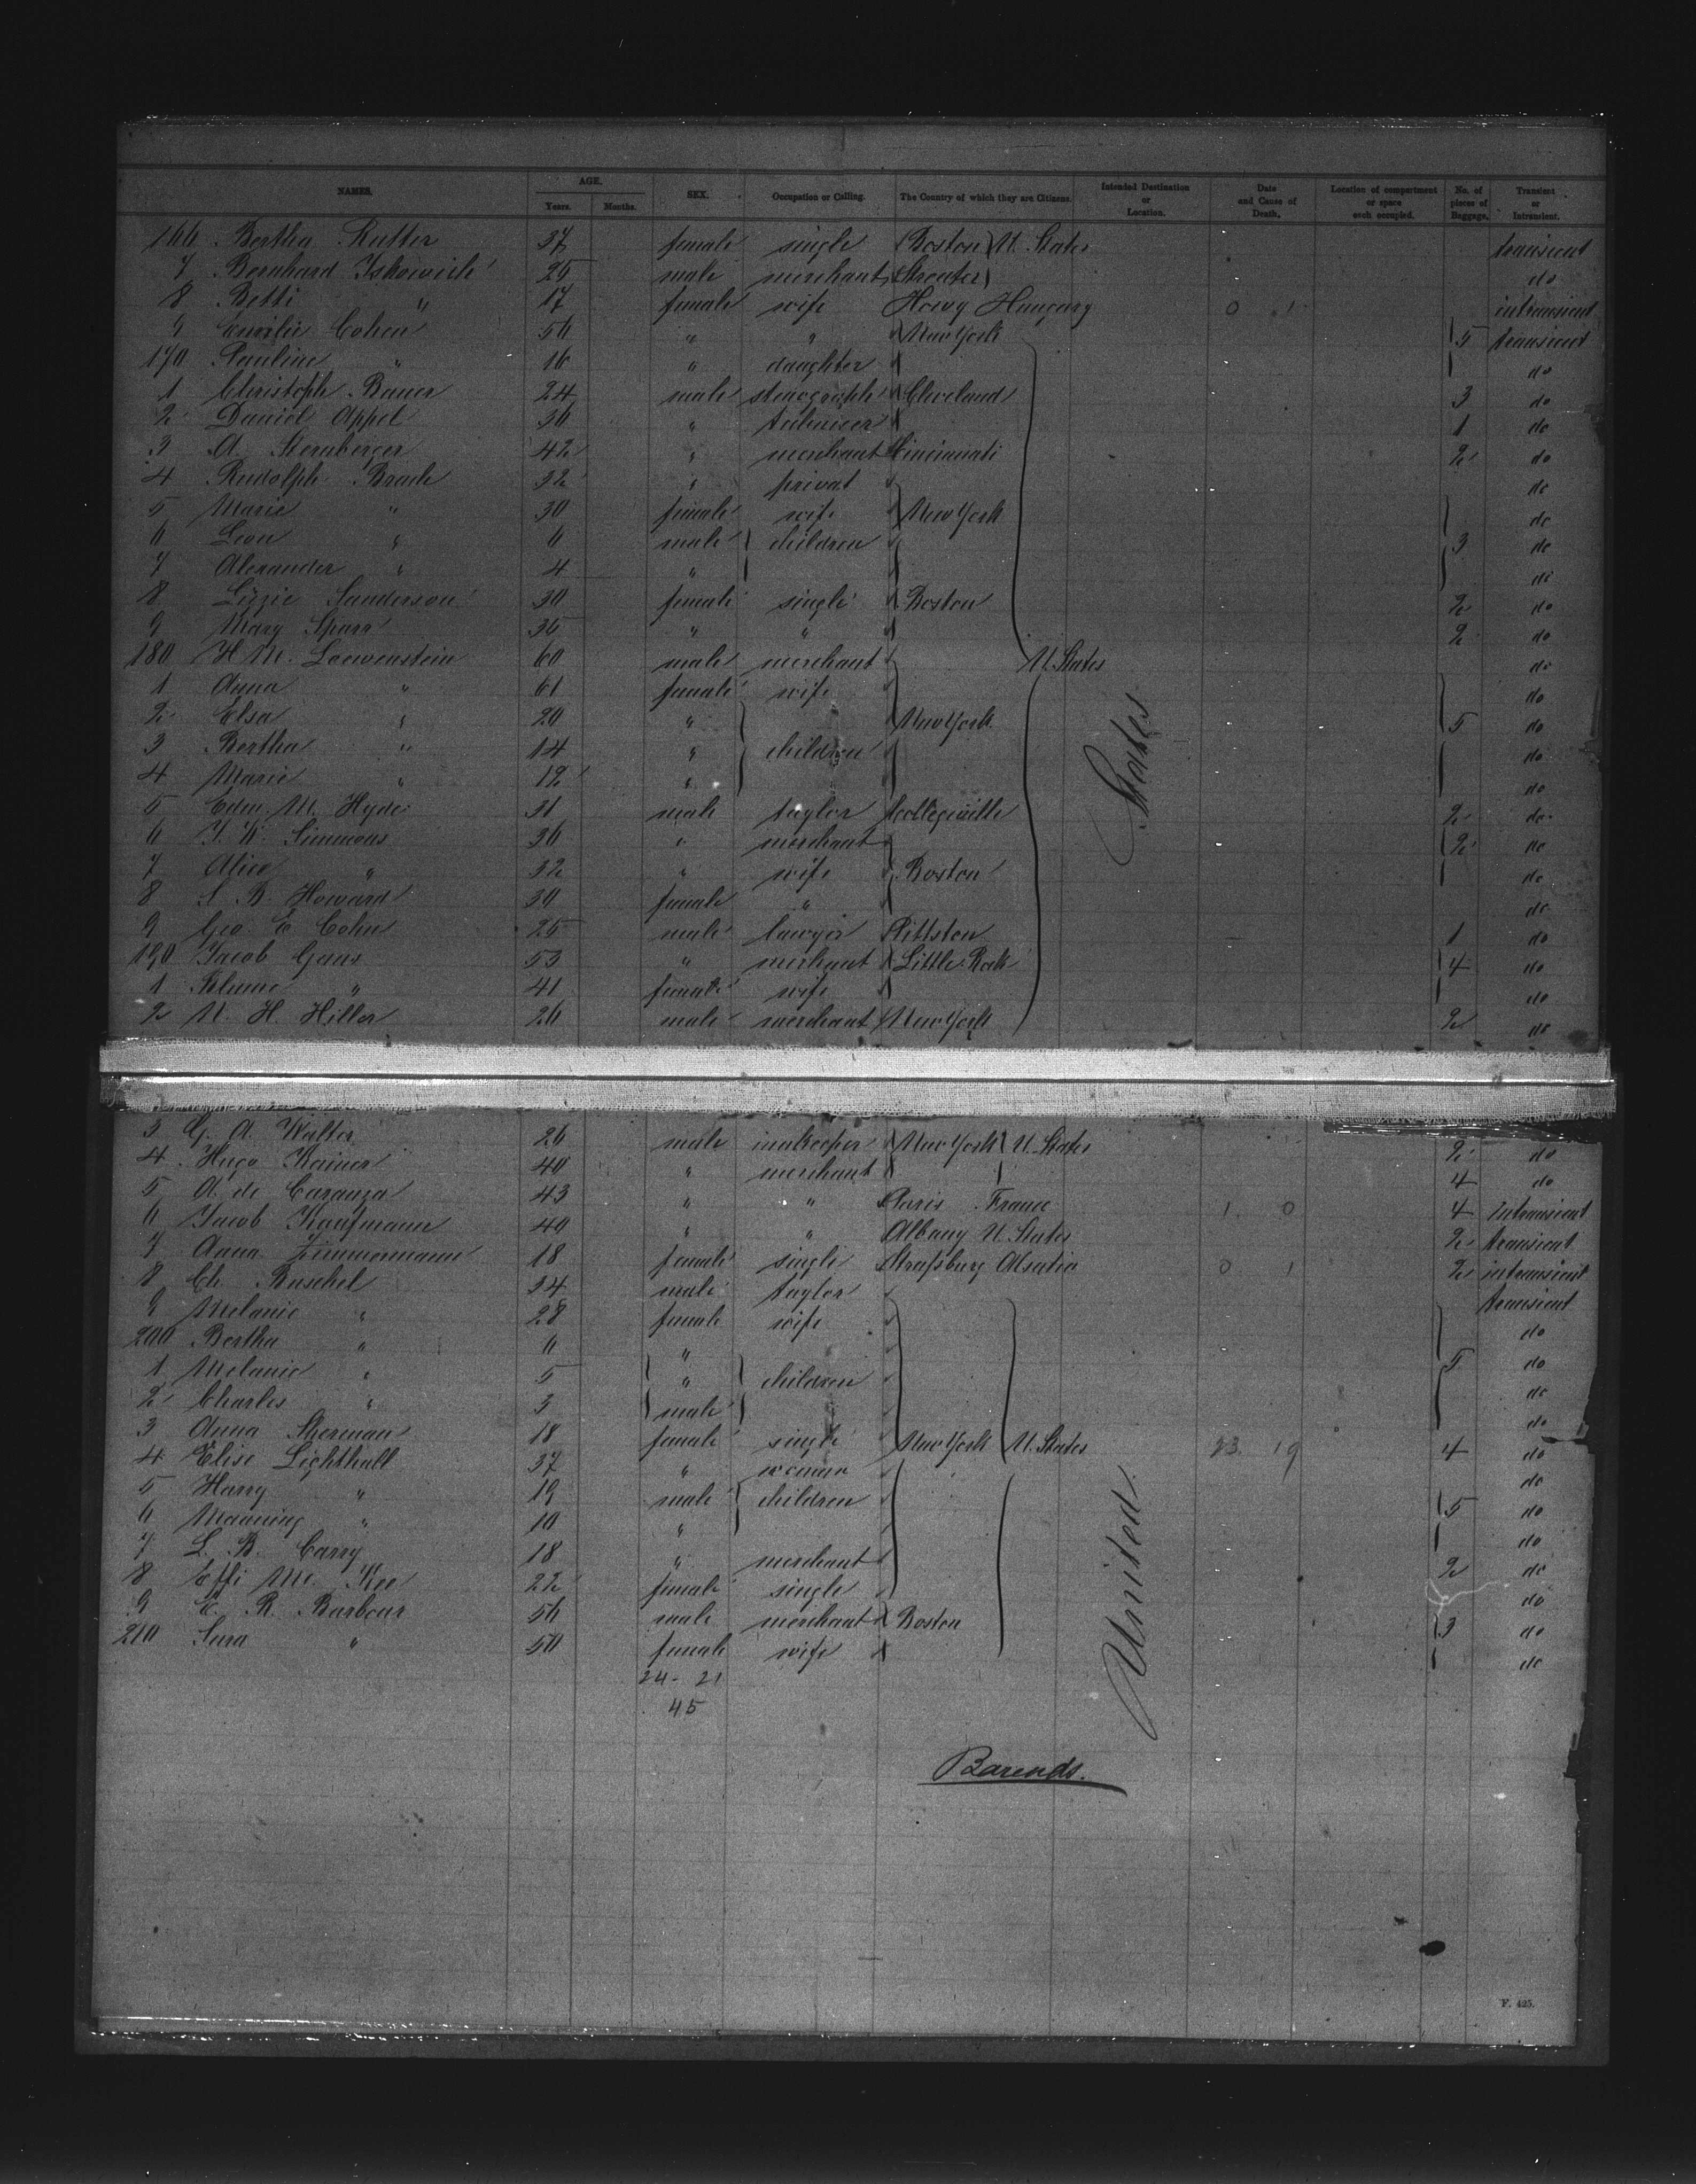 NAMES. AGE. Years. Months. SEX. Occupation or Calling. The Country of which they are Citizens. Intended Destination or Location. Date and Cause of Death. Location of compartment or space each occupied. No. of pieces of Baggage. Transient or Intransient.
166 Bertha Rutter 37 female single Boston U. States transient
7 Bernhard 25 male merchant do
8 Betti " 17 female wife Hungary 0 1 intransient
9 Emilie Cohen 56 " " New York 5 transient
170 Pauline " 16 " daughter do
1 Christoph Bauer 24 male stenograph Cleveland 3 do
2 Daniel Appel 36 " 1 do
3 A. Sternberger 42 " merchant Cincinnati 2 do
4 Rudolph Brach 32 " privat do
5 Marie " 30 female wife New York do
6 Leon " 6 male children 3 do
7 Alexander " 4 " do
8 Lizzie Sanderson 30 female single Boston 2 do
9 Mary Sparr 36 " " 2 do
180 H. M. Loewenstein 60 male merchant U. States do
1 Anna " 61 female wife do
2 Elsa " 20 " New York 5 do
3 Bertha " 14 " children do
4 Marie " 12 " do
5 Edm. M. Hyde 31 male taylor Collegeville 2 do
6 Simmons 36 " merchant 2 do
7 Alice " 32 " wife Boston do
8 S. B. Howard 30 female " do
9 Geo. E. Cohn 25 male lawyer Pittston 1 do
190 Jacob Gans 53 " merchant Little Rock 4 do
1 Blume " 41 female wife do
2 M. H. Hiller 26 male merchant New York 2 do
States
3 G. A. Walter 26 male innkeeper New York U. States 2 do
4 Hugo Kainer 40 " merchant 4 do
5 A. de Caranza 43 " " Paris France 1 0 4 Intransient
6 Jacob Kaufmann 40 " " Albany U. States 2 transient
7 Anna Zimmermann 18 female single Straßburg Alsatia 0 1 2 intransient
8 Ch. Buschel 34 male taylor transient
9 Melanie " 28 female wife do
200 Bertha " 6 " do
1 Melanie " 5 " children 5 do
2 Charles " 3 male do
3 Anna Sherman 18 female single New York U. States 23 19 4 do
4 Elise Lighthall 37 " woman do
5 Harry " 19 male children 5 do
6 Manning " 10 " do
7 L. B. Carry 18 " merchant 2 do
8 Effi Mc. Kee 22 female single do
9 E. R. Barbour 56 male merchant Boston 3 do
210 Sara " 50 female wife do
United
24 - 21
45
Barends.
F. 425.